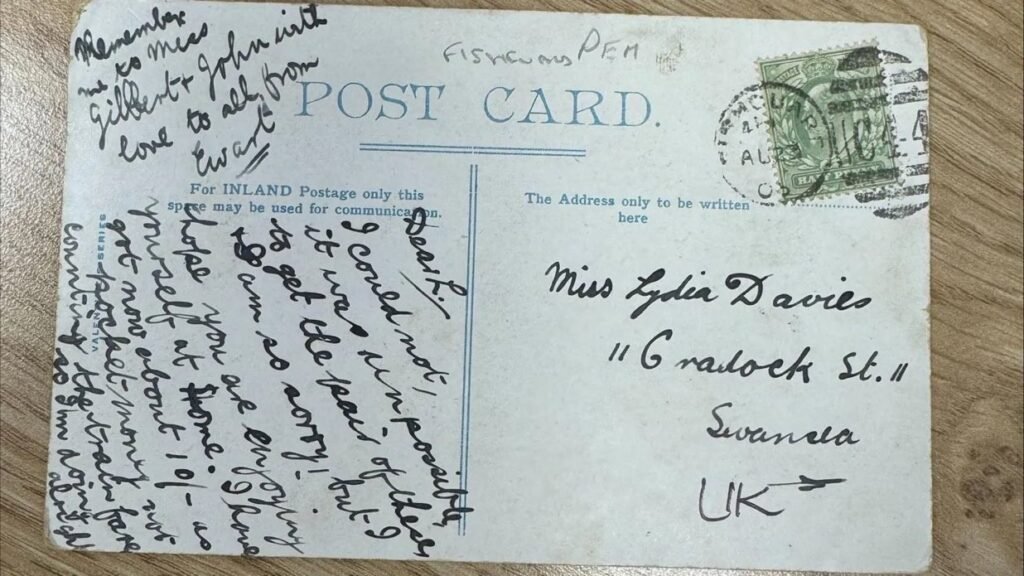 Remember
me to Miss
Gilbert & John with
love to all from
Ewart
PEM
POST CARD.
For INLAND Postage only this
space may be used for communication.
The Address only to be written
here
AU
03
Dear L.
I could not,
it was impossible
to get the pair of these
I am so sorry! but I
hope you are enjoying
yourself at home. I have
got now about 10/- as
pocket money not
counting the train fare
so I'm doing alright
SERIES
Miss Lydia Davies
"Cradock St."
Swansea
UK